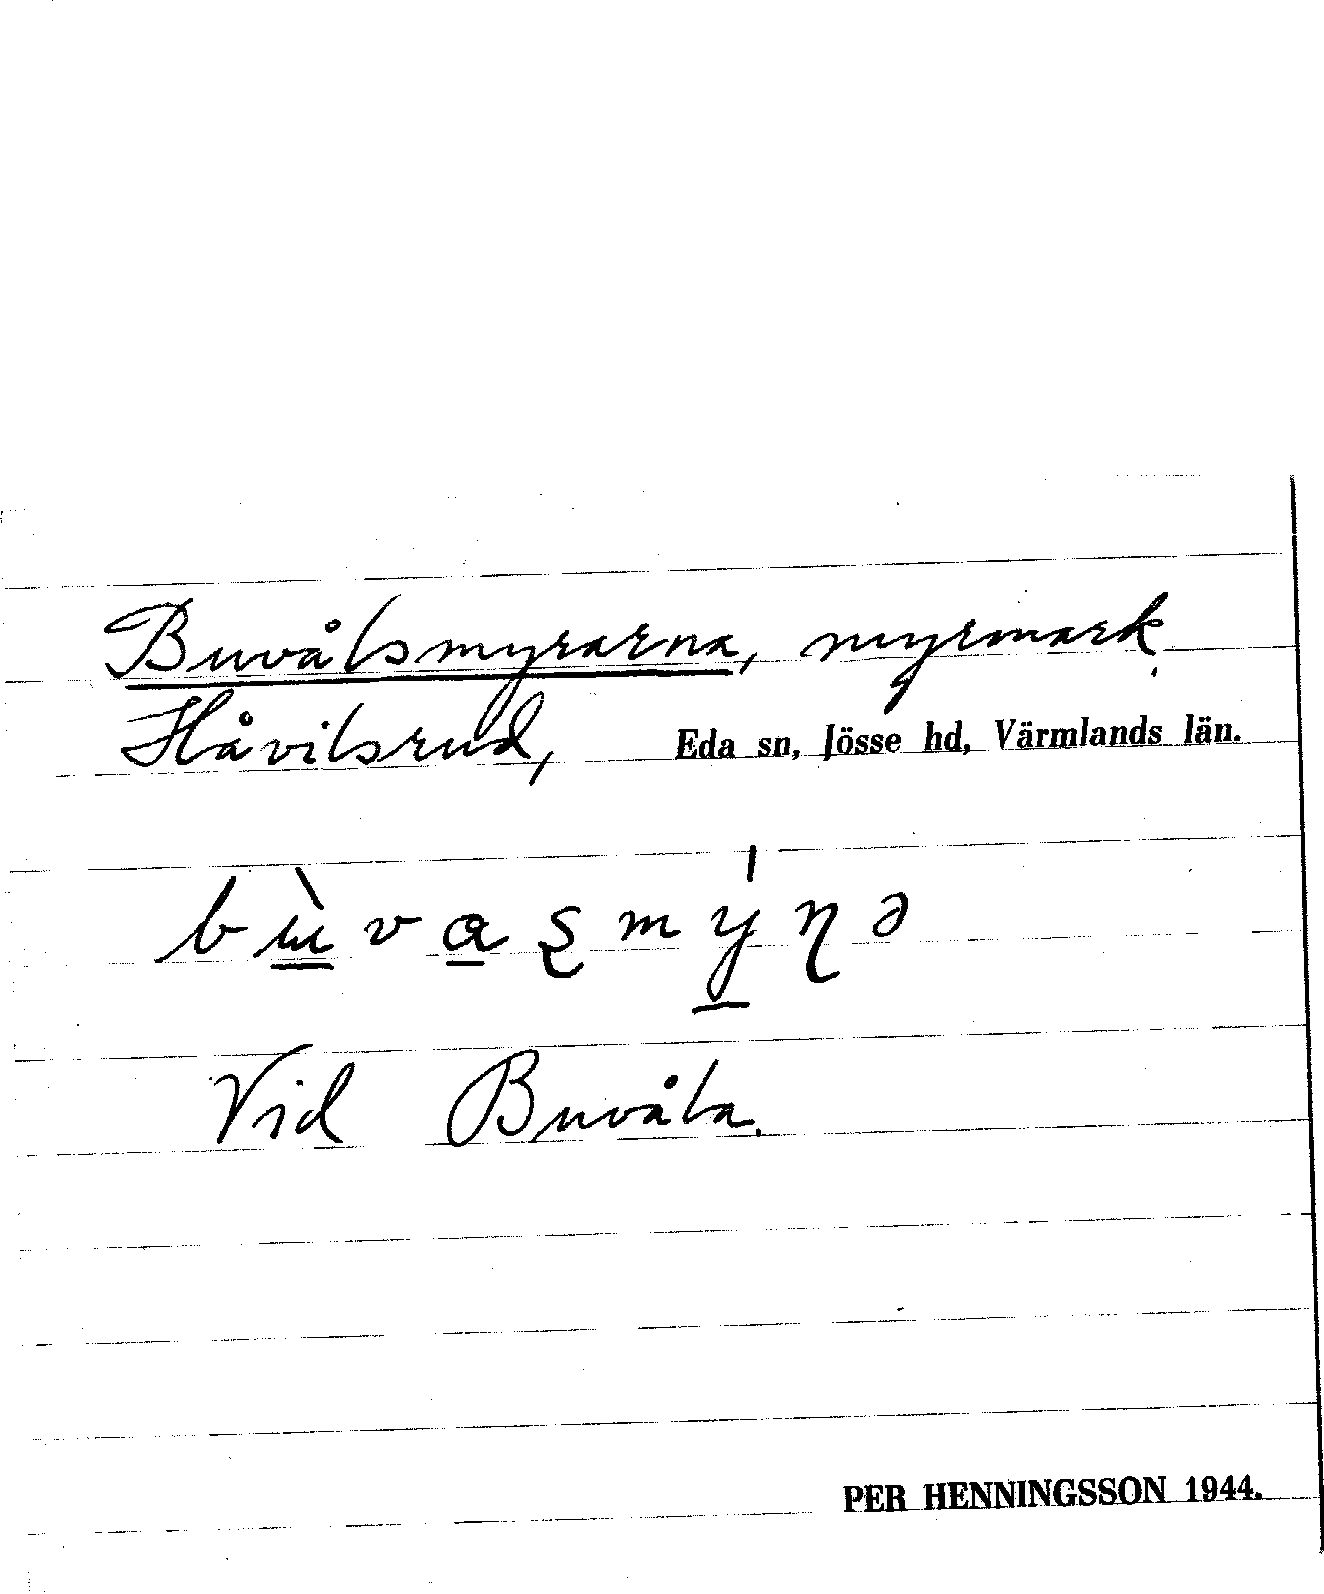 Buvålsmyrarna, myrmark,
Håvilsrud, Eda sn, Jösse hd, Värmlands län.
bɯ̀vaʂmýɳə
Vid Buvåla.
PER HENNINGSSON 1944.